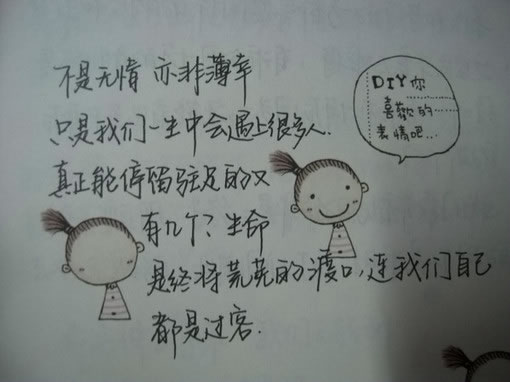 不是无情 亦非薄幸
只是我们一生中会遇上很多人.
真正能停留驻足的又
有几个？生命
是终将荒芜的渡口，连我们自己
都是过客.
DIY你
喜歡的
表情吧...